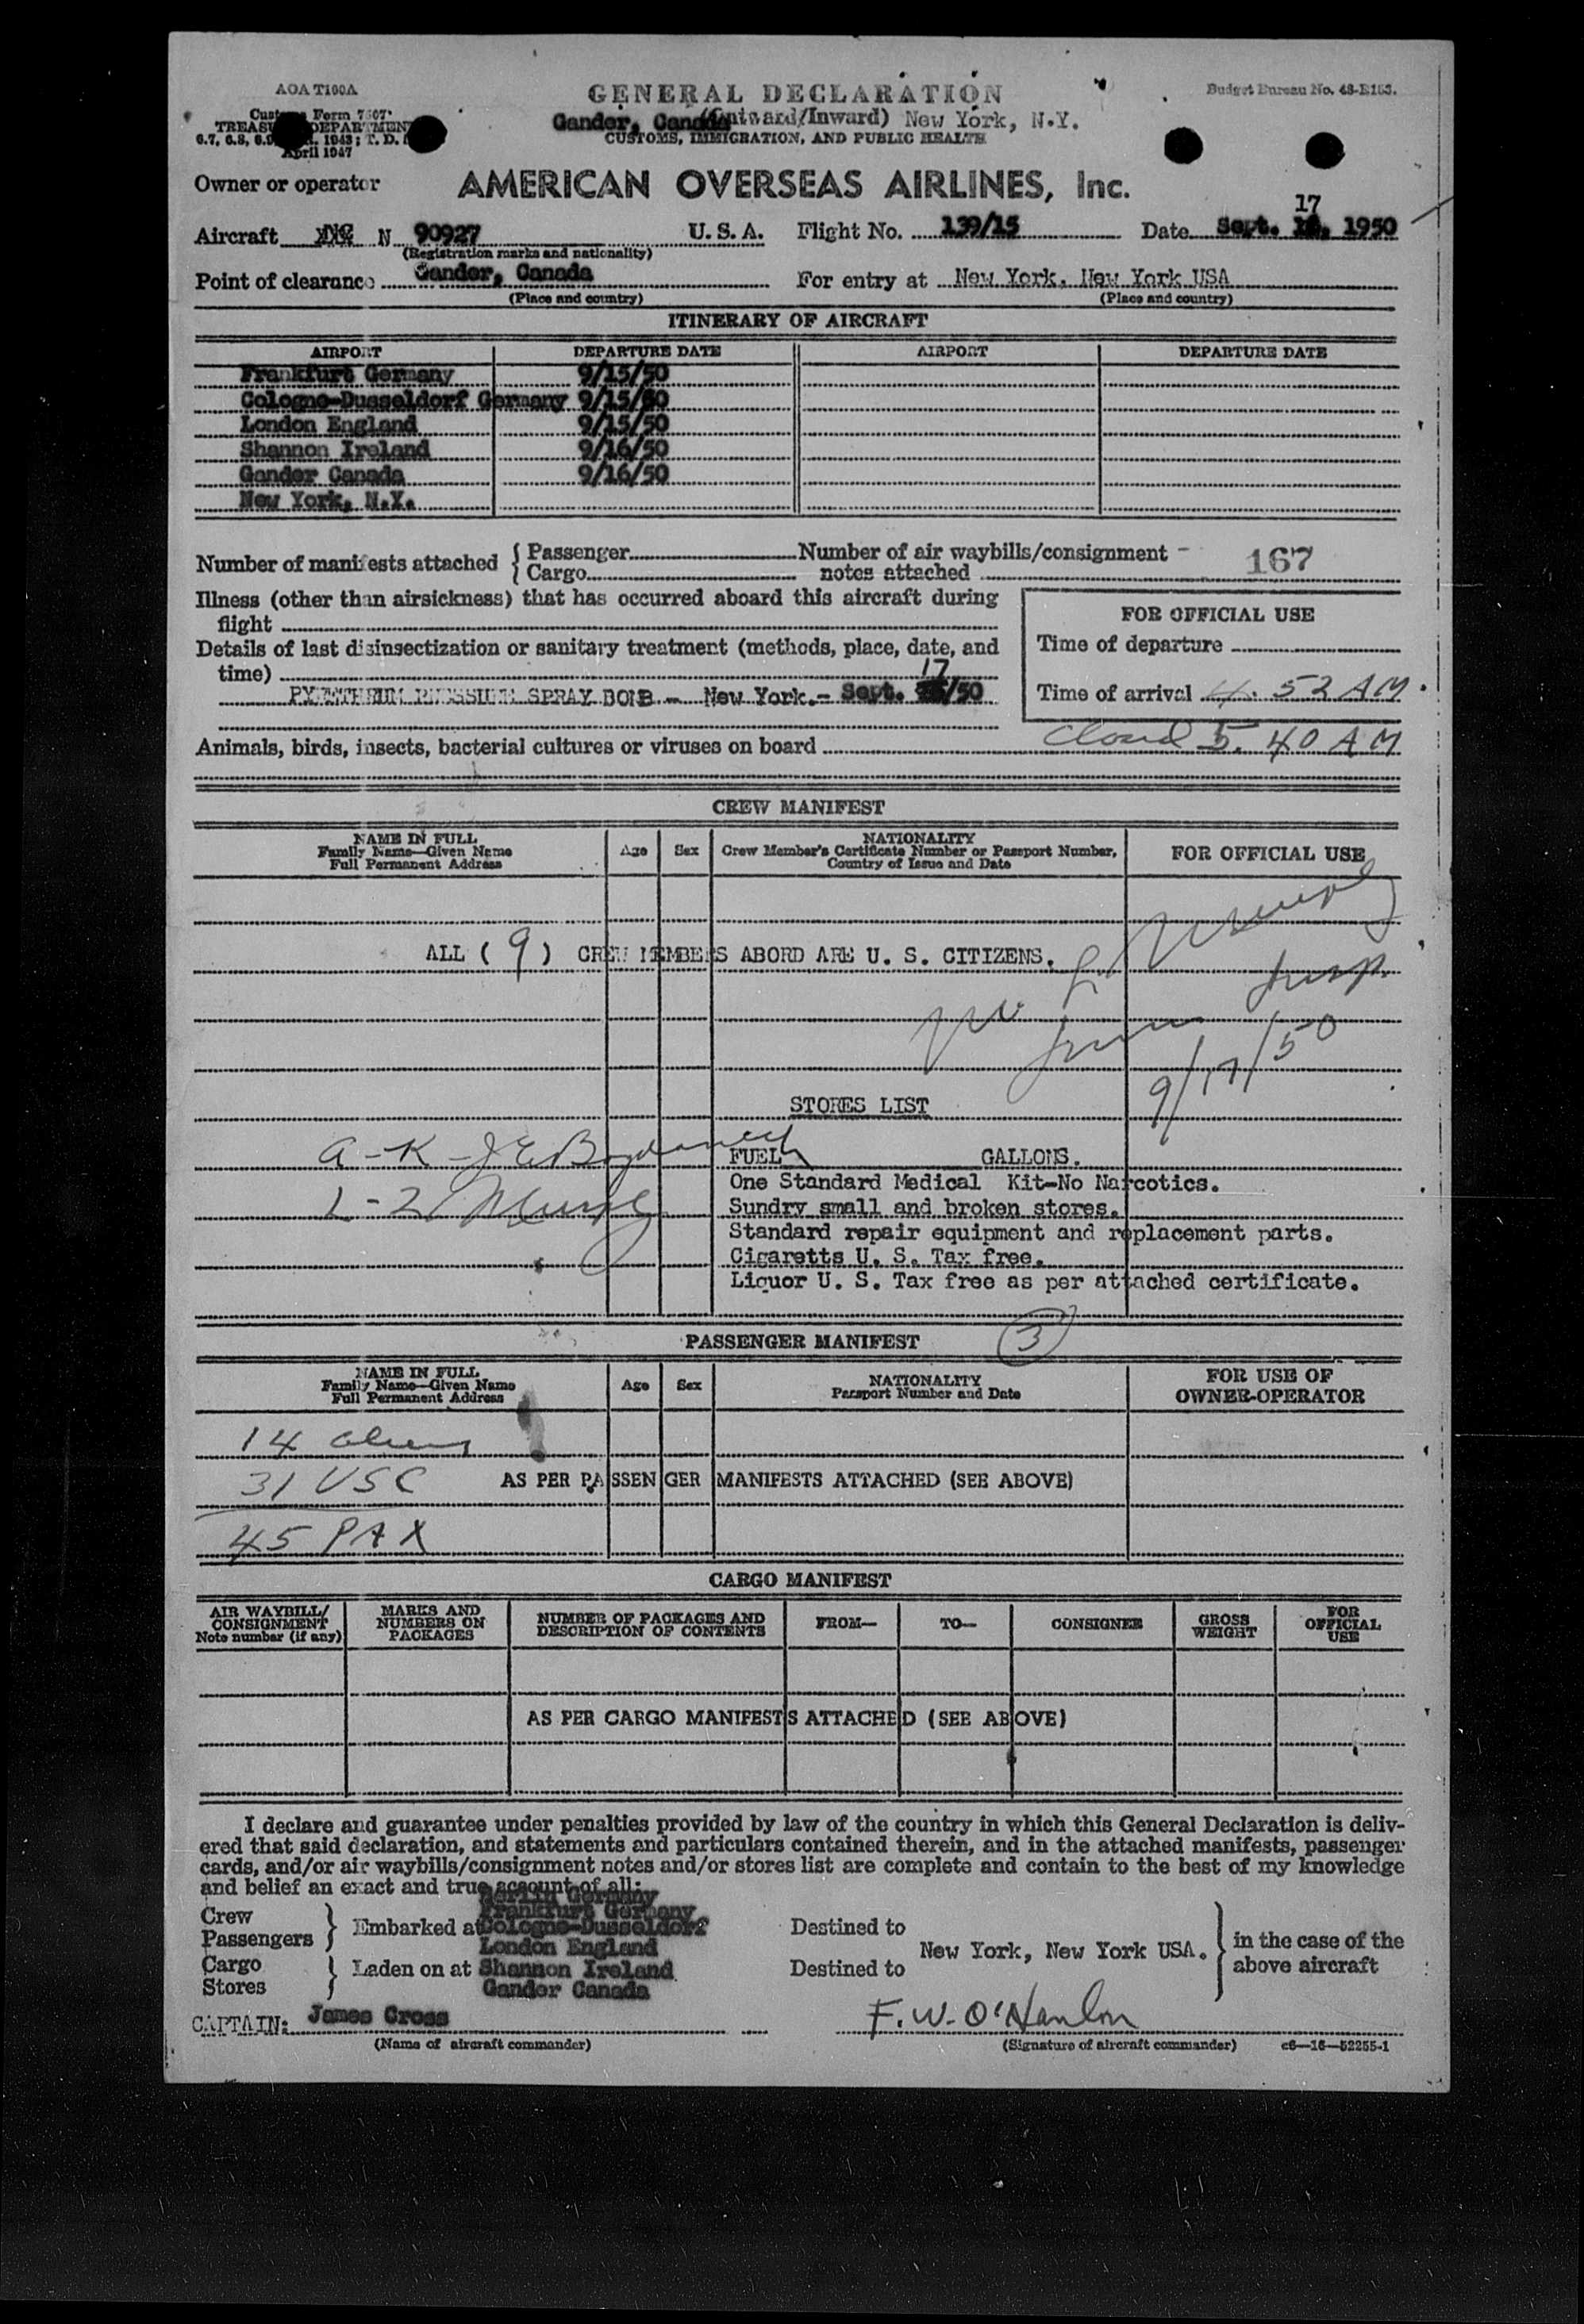 AOA T100A
GENERAL DECLARATION
Budget Bureau No. 48-R153.
Customs Form 7507
Gander, Canada (Outward/Inward) New York, N.Y.
TREASURY DEPARTMENT
CUSTOMS, IMMIGRATION, AND PUBLIC HEALTH
6.7, 6.8, 6.9, 1943; T. D.
April 1947
Owner or operator AMERICAN OVERSEAS AIRLINES, Inc.
17
Aircraft NC N 90927 U. S. A. Flight No. 139/15 Date Sept. 1950
(Registration marks and nationality)
Point of clearance Gander, Canada For entry at New York, New York USA
(Place and country) (Place and country)
ITINERARY OF AIRCRAFT
AIRPORT DEPARTURE DATE AIRPORT DEPARTURE DATE
Frankfurt Germany 9/15/50
Cologne-Dusseldorf Germany 9/15/50
London England 9/15/50
Shannon Ireland 9/16/50
Gander Canada 9/16/50
New York, N.Y.
Number of manifests attached { Passenger Number of air waybills/consignment - 167
Cargo notes attached
Illness (other than airsickness) that has occurred aboard this aircraft during
flight
FOR OFFICIAL USE
Details of last disinsectization or sanitary treatment (methods, place, date, and
Time of departure
time) 17
PYRETHRUM SPRAY BOMB - New York.- Sept. /50
Time of arrival 4. 52 AM.
Animals, birds, insects, bacterial cultures or viruses on board
5. 40 AM
CREW MANIFEST
NAME IN FULL
Family Name—Given Name
Full Permanent Address
Age Sex
NATIONALITY
Crew Member's Certificate Number or Passport Number,
Country of Issue and Date
FOR OFFICIAL USE
ALL ( 9 ) CREW MEMBERS ABORD ARE U. S. CITIZENS.
Insp.
9/17/50
STORES LIST
A-K-J E
FUEL GALLONS.
One Standard Medical Kit-No Narcotics.
L-Z
Sundry small and broken stores.
Standard repair equipment and replacement parts.
Cigaretts U. S. Tax free.
Liquor U. S. Tax free as per attached certificate.
PASSENGER MANIFEST 3
NAME IN FULL
Family Name—Given Name
Full Permanent Address
Age Sex
NATIONALITY
Passport Number and Date
FOR USE OF
OWNER-OPERATOR
14 aliens
31 USC AS PER PASSENGER MANIFESTS ATTACHED (SEE ABOVE)
45 PAX
CARGO MANIFEST
AIR WAYBILL/
CONSIGNMENT
Note number (if any)
MARKS AND
NUMBERS ON
PACKAGES
NUMBER OF PACKAGES AND
DESCRIPTION OF CONTENTS
FROM— TO— CONSIGNEE
GROSS
WEIGHT
FOR
OFFICIAL
USE
AS PER CARGO MANIFESTS ATTACHED (SEE ABOVE)
I declare and guarantee under penalties provided by law of the country in which this General Declaration is deliv-
ered that said declaration, and statements and particulars contained therein, and in the attached manifests, passenger
cards, and/or air waybills/consignment notes and/or stores list are complete and contain to the best of my knowledge
and belief an exact and true account of all:
Berlin Germany
Crew
Frankfurt Germany
Passengers } Embarked at Cologne-Dusseldorf Destined to
London England New York, New York USA. } in the case of the
Cargo
Stores } Laden on at Shannon Ireland Destined to above aircraft
Gander Canada
CAPTAIN: James Cross F. W. O'Hanlon
(Name of aircraft commander) (Signature of aircraft commander) c6—16—52255-1